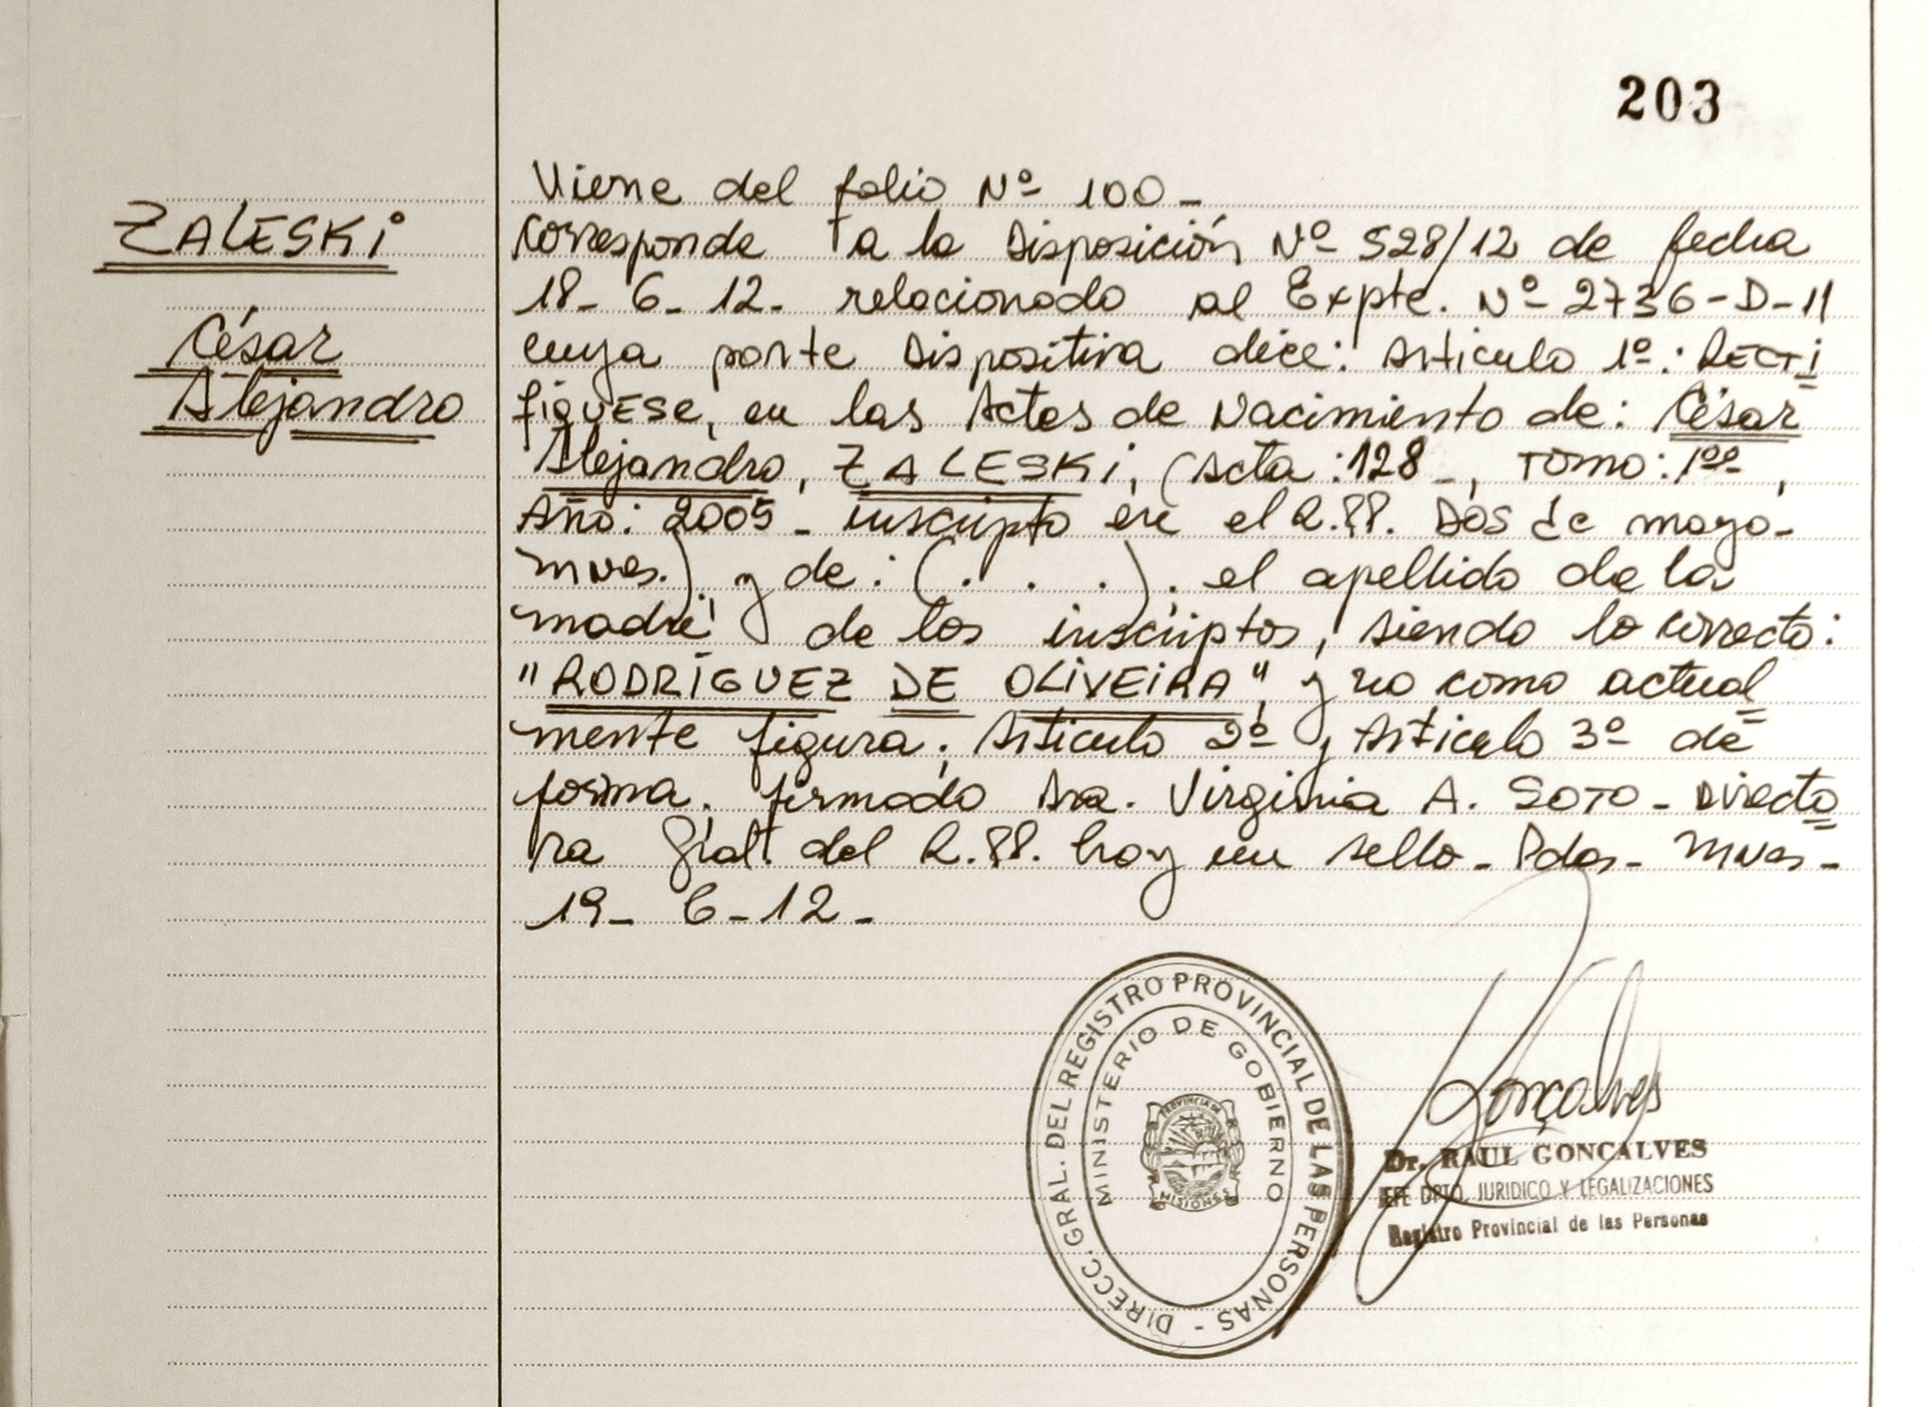 203
ZALESKI
César
Alejandro
Viene del folio Nº 100-
Corresponde a la Disposición Nº 528/12 de fecha
18- 6- 12- relacionado al Expte. Nº 2736-D-11
cuya parte Dispositiva dice: Articulo 1º: RECTI
FIQUESE, en las Actas de Nacimiento de: César
Alejandro, ZALESKI, (Acta: 128 -, Tomo: 1º,
Año: 2005 - inscripto en el R.PP. Dos de mayo-
Mnes.) y de: (. . .). el apellido de la
madre de los inscriptos, siendo lo correcto:
"RODRÍGUEZ DE OLIVEIRA" y no como actual
mente figura; Articulo 2º y Articulo 3º de
forma. firmado Dra. Virginia A. SOTO - Directo
ra Gral. del R.PP. hay un sello - Pdas - Mnes -
19- 6-12-
DIRECC. GRAL. DEL REGISTRO PROVINCIAL DE LAS PERSONAS -
MINISTERIO DE GOBIERNO
PROVINCIA DE
MISIONES
Gonçalves
Dr. RAUL GONCALVES
JEFE DPTO. JURIDICO Y LEGALIZACIONES
Registro Provincial de las Personas